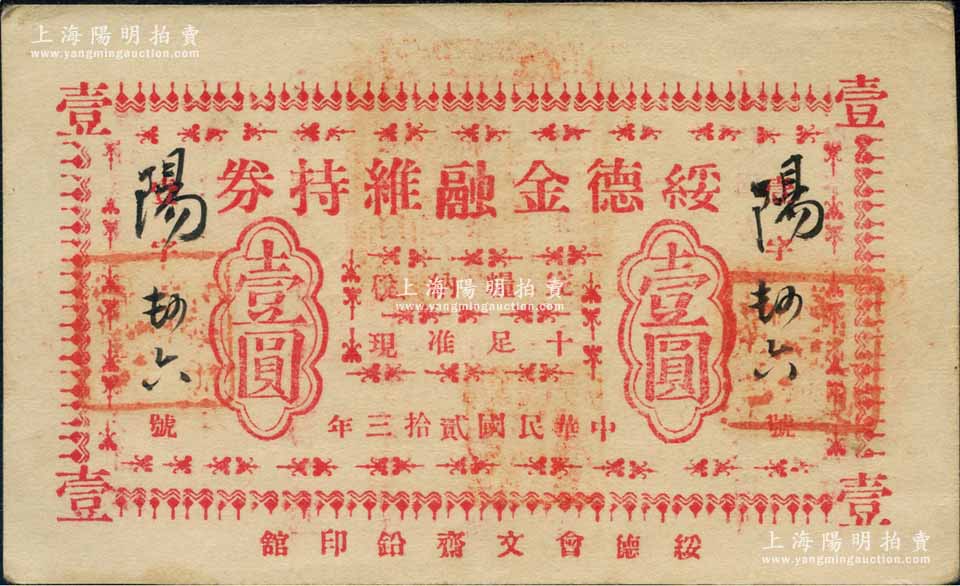 上海陽明拍賣
www.yangmingauction.com
上海陽明拍賣
www.yangmingauction.com
壹 壹
綏德金融維持券
陽字 號
陽字 號
壹圓
壹圓
完糧納稅
十足准現
中華民國貳拾三年
壹 壹
綏德會文齋鉛印館
上海陽明拍賣
www.yangmingauction.com
上海陽明拍賣
www.yangmingauction.com